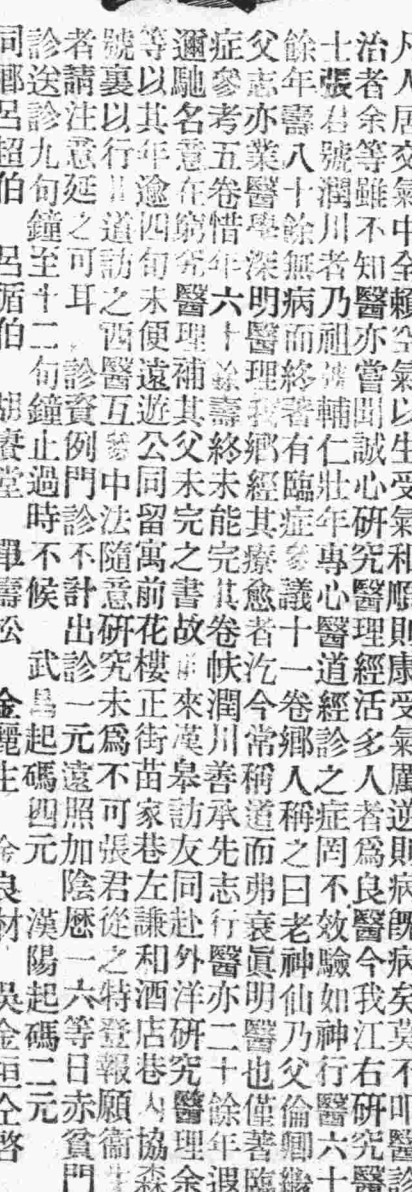 凡人居交氣中全賴空氣以生受氣和順則康受氣厲逆則病旣病矣莫不叩醫診
治者余等雖不知醫亦嘗聞誠心研究醫理經活多人者爲良醫今我江右研究醫
士張君號潤川者乃祖輔仁壯年專心醫道經診之症罔不效驗如神行醫六十
餘年壽八十餘無病而終著有臨症參議十一卷鄉人稱之曰老神仙乃父倫卿繼
父志亦業醫學深明醫理我鄉經其療愈者迄今常稱道而弗衰眞明醫也僅著臨
症參考五卷惜年六十餘壽終未能完其卷帙潤川善承先志行醫亦二十餘年遐
邇馳名意在窮究醫理補其父未完之書故來漢皋訪友同赴外洋研究醫理余
等以其年逾四旬未便遠遊公同留寓前花樓正街苗家巷左謙和酒店巷內協森
號裏以行其道訪之西醫互參中法隨意研究未爲不可張君從之特登報願衞生
者請注意延之可耳 診資例門診不計出診一元遠照加陰曆一六等日赤貧門
診送診九旬鐘至十二旬鐘止過時不候 武昌起碼四元 漢陽起碼二元
同鄉呂超伯 呂循伯 胡賡堂 單壽松 金麗生 金良材 吳金垣仝啓